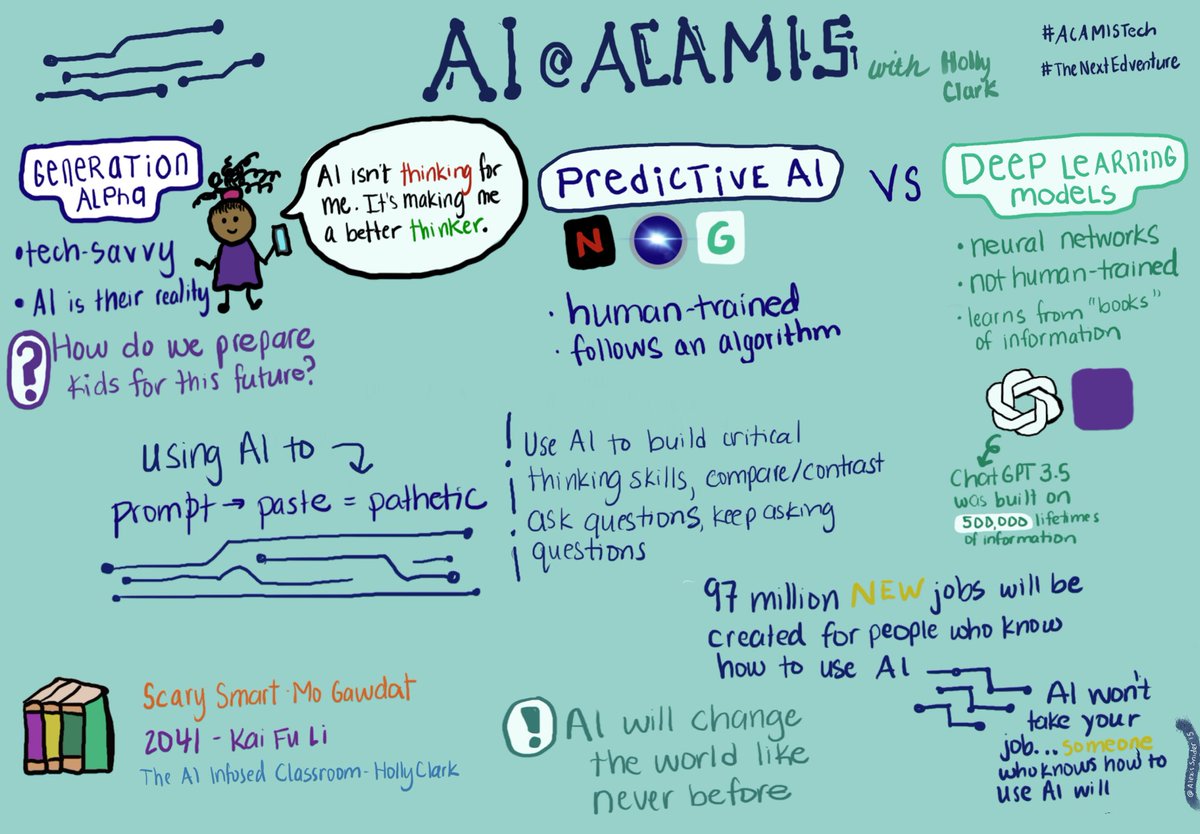 AI @ ACAMIS
with Holly
Clark
#ACAMISTech
#TheNextEdventure
Generation
Alpha
•tech-savvy
• AI is their reality
? How do we prepare
kids for this future?
AI isn't thinking for
me. It's making me
a better thinker.
Predictive AI
N
G
· human-trained
· follows an algorithm
VS
Deep Learning
Models
· neural networks
· not human-trained
· learns from "books"
of information
ChatGPT 3.5
was built on
500,000 lifetimes
of information
using AI to
prompt → paste = pathetic
Use AI to build critical
thinking skills, compare/contrast
ask questions, keep asking
questions
97 million NEW jobs will be
created for people who know
how to use AI
AI won't
take your
job... someone
who knows how to
use AI will
Scary Smart - Mo Gawdat
2041 - Kai Fu Li
The AI Infused Classroom - Holly Clark
! AI will change
the world like
never before